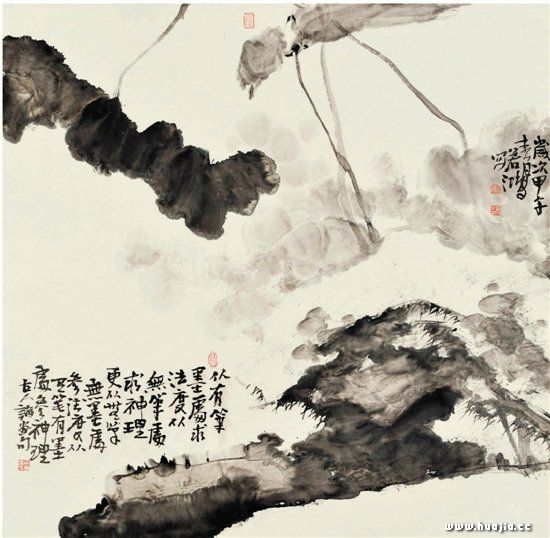 歲次甲午
从有筆
墨處求
法度从
無筆處
求神理
更从無筆
無墨處
參法度从
有筆有墨
處參神理
古人
www.huajia.cc